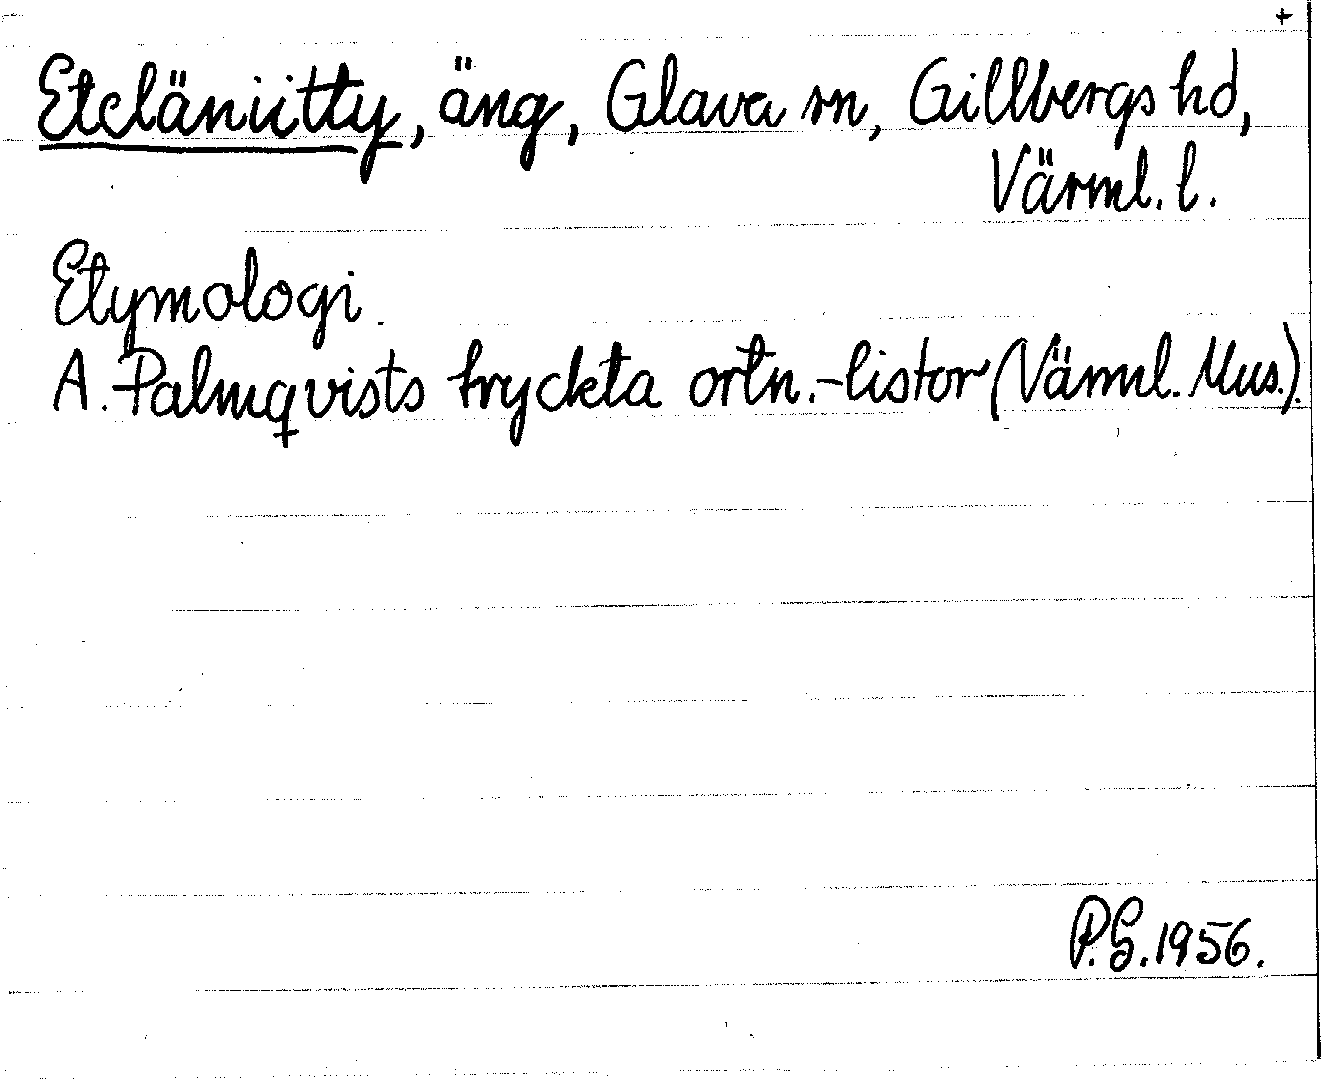 +
Eteläniitty, äng, Glava sn, Gillbergs hd,
Värml. l.
Etymologi.
A. Palmqvists tryckta ortn.-listor (Värml. Mus.).
P.G. 1956.